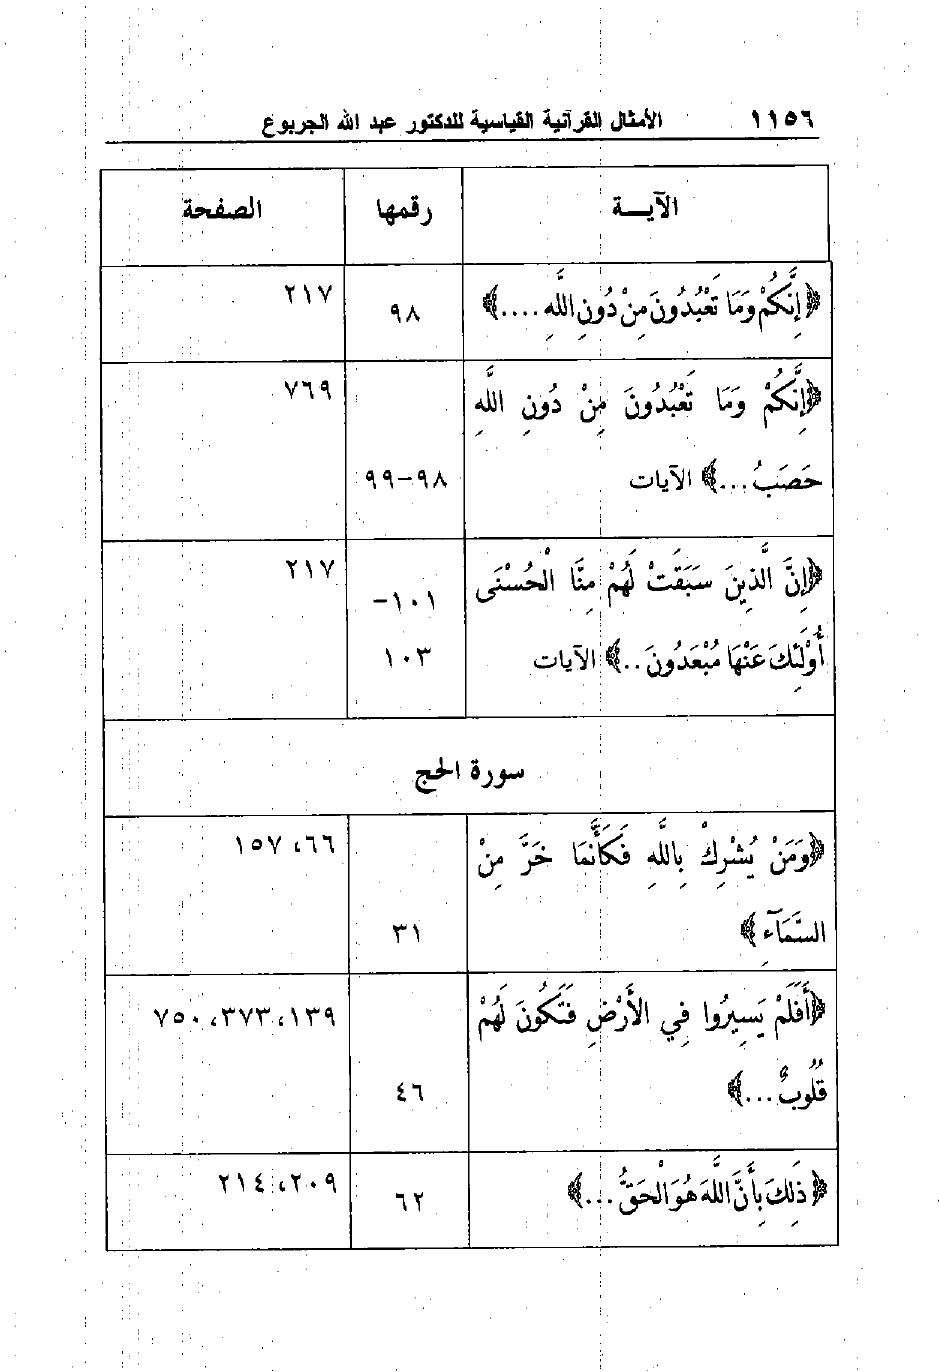 ١١٥٦ الأمثال القرآنية القياسية للدكتور عبد الله الجربوع
الآيــة رقمها الصفحة
﴿إِنَّكُمْ وَمَا تَعْبُدُونَ مِنْ دُونِ اللَّهِ ....﴾ ٩٨ ٢١٧
﴿إِنَّكُمْ وَمَا تَعْبُدُونَ مِنْ دُونِ اللَّهِ ٧٦٩
حَصَبُ ...﴾ الآيات ٩٨-٩٩
﴿إِنَّ الَّذِينَ سَبَقَتْ لَهُمْ مِنَّا الْحُسْنَى ١٠١- ٢١٧
أُوْلَئِكَ عَنْهَا مُبْعَدُونَ ..﴾ الآيات ١٠٣
سورة الحج
﴿وَمَنْ يُشْرِكْ بِاللَّهِ فَكَأَنَّمَا خَرَّ مِنْ ٦٦، ١٥٧
السَّمَآءِ﴾ ٣١
﴿أَفَلَمْ يَسِيرُوا فِي الأَرْضِ فَتَكُونَ لَهُمْ ١٣٩، ٣٧٣، ٧٥٠
قُلُوبٌ ...﴾ ٤٦
﴿ذَلِكَ بِأَنَّ اللَّهَ هُوَ الْحَقُّ ...﴾ ٦٢ ٢٠٩، ٢١٤